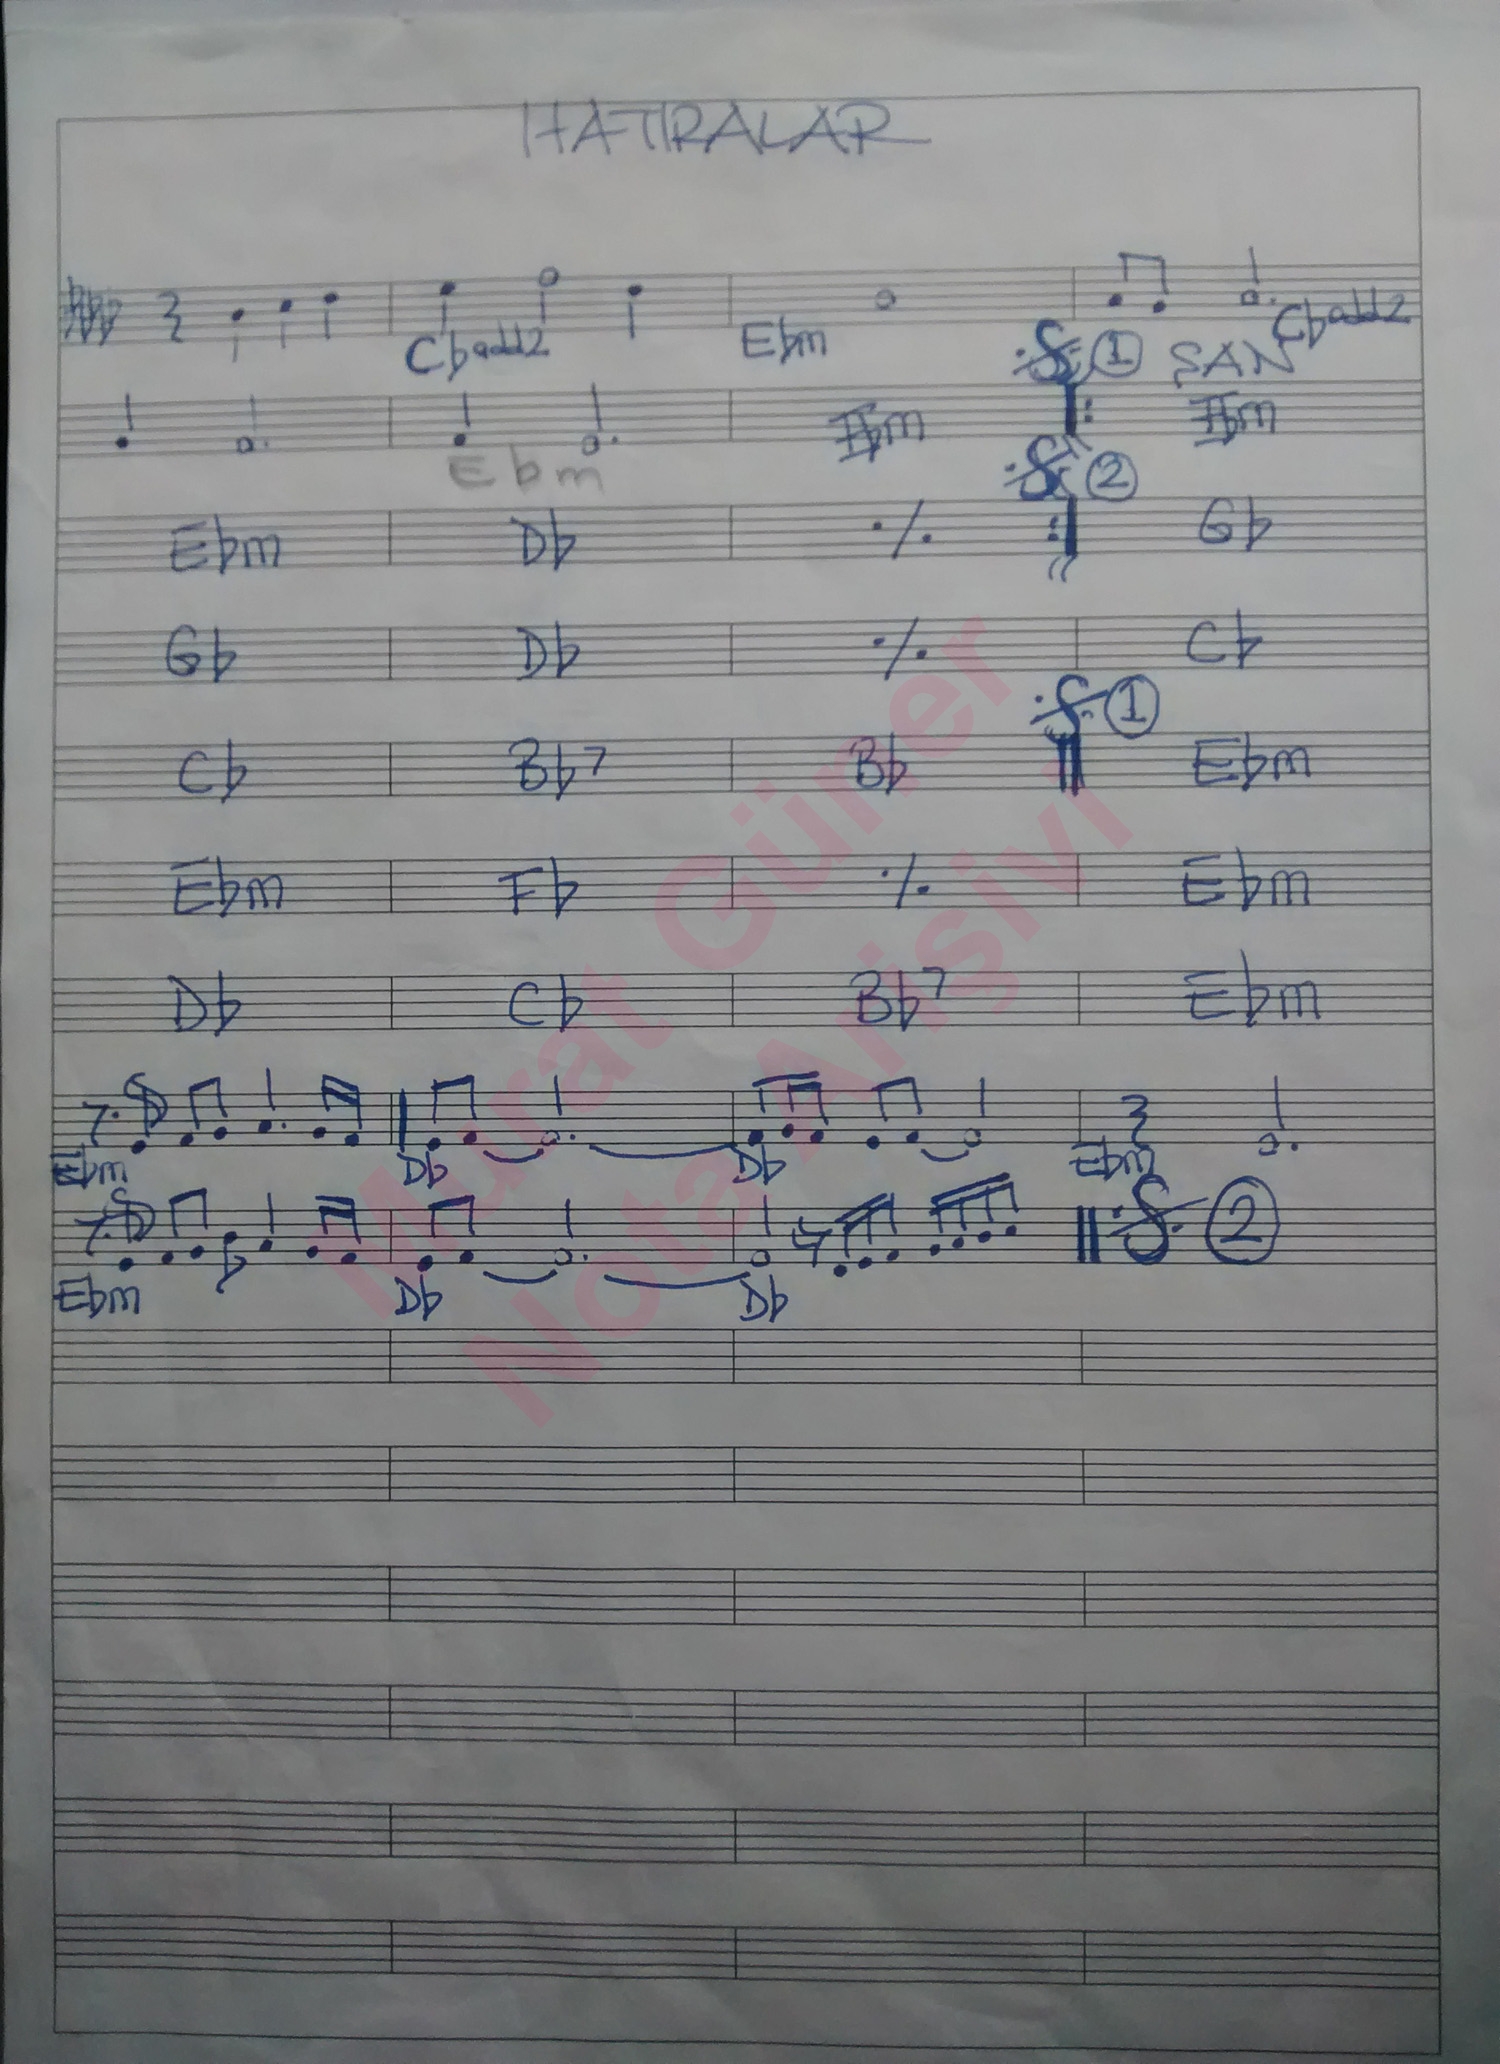 HATIRALAR
C♭add2 E♭m C♭add2
𝄋 ① ŞAN
E♭m E♭m
E♭m
𝄋 ②
E♭m D♭ ٪ G♭
G♭ D♭ ٪ C♭
𝄋 ①
C♭ B♭7 B♭ E♭m
E♭m F♭ ٪ E♭m
D♭ C♭ B♭7 E♭m
E♭m D♭ D♭ E♭m
𝄋 ②
E♭m D♭ D♭
Murat Güner
Nota Arşivi